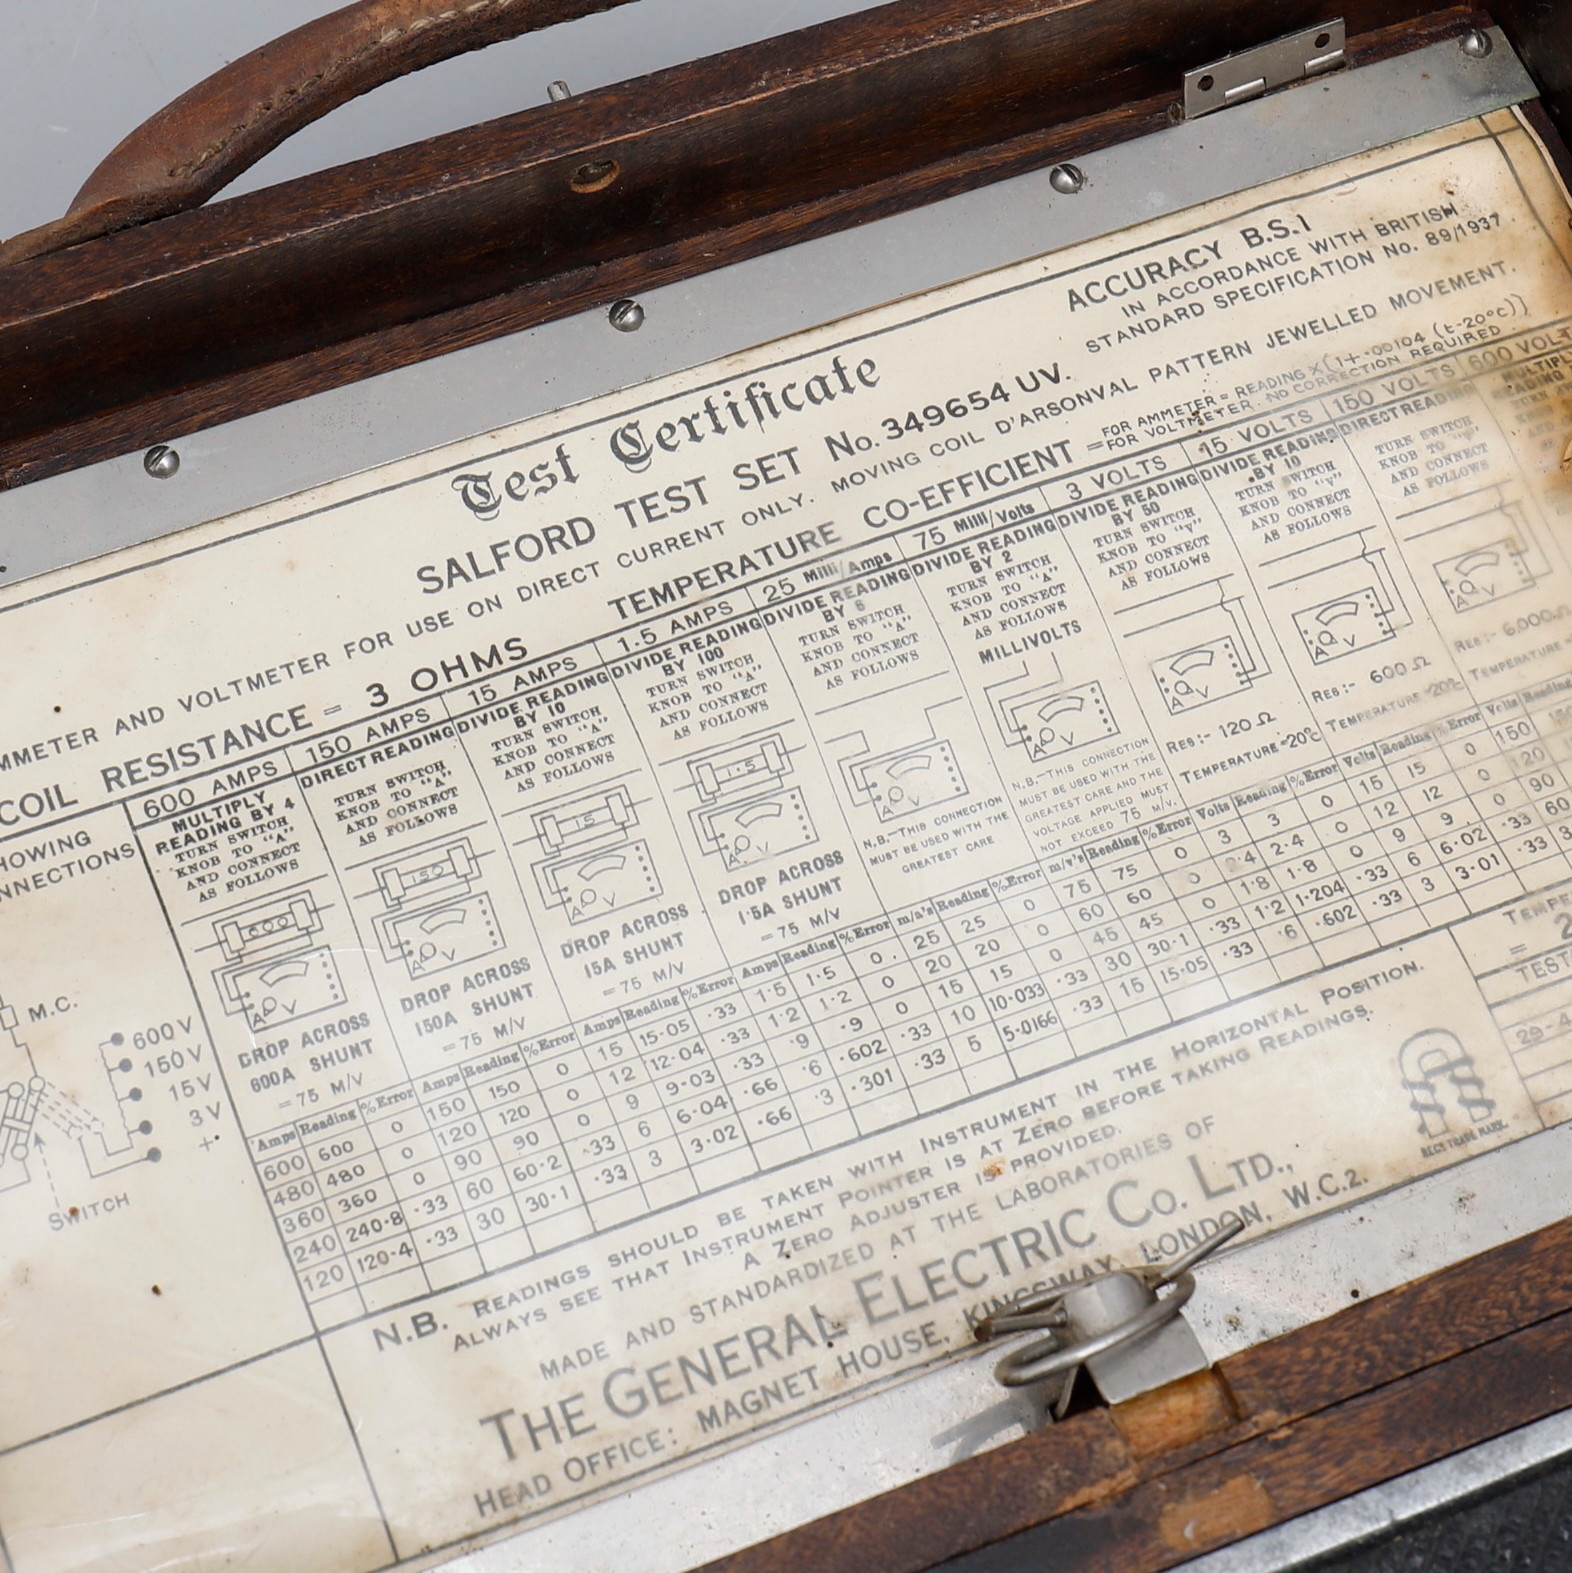 Test Certificate
ACCURACY B.S.1
IN ACCORDANCE WITH BRITISH
STANDARD SPECIFICATION No. 89/1937
SALFORD TEST SET No. 349654 UV.
AMMETER AND VOLTMETER FOR USE ON DIRECT CURRENT ONLY. MOVING COIL D'ARSONVAL PATTERN JEWELLED MOVEMENT.
COIL RESISTANCE = 3 OHMS TEMPERATURE CO-EFFICIENT =
FOR AMMETER = READING × (1+·00104 (t-20°C))
FOR VOLTMETER - NO CORRECTION REQUIRED
CONNECTIONS
M.C.
600 V
150 V
15 V
3 V
+
SWITCH
600 AMPS
MULTIPLY
READING BY 4
TURN SWITCH
KNOB TO "A"
AND CONNECT
AS FOLLOWS
600
A V
DROP ACROSS
600A SHUNT
= 75 M/V
Amps Reading % Error
600 600 0
480 480 0
360 360 0
240 240·8 ·33
120 120·4 ·33
150 AMPS
DIRECT READING
TURN SWITCH
KNOB TO "A"
AND CONNECT
AS FOLLOWS
150
A V
DROP ACROSS
150A SHUNT
= 75 M/V
Amps Reading % Error
150 150 0
120 120 0
90 90 0
60 60·2 ·33
30 30·1 ·33
15 AMPS
DIVIDE READING
BY 10
TURN SWITCH
KNOB TO "A"
AND CONNECT
AS FOLLOWS
15
A V
DROP ACROSS
15A SHUNT
= 75 M/V
Amps Reading % Error
15 15·05 ·33
12 12·04 ·33
9 9·03 ·33
6 6·04 ·66
3 3·02 ·66
1.5 AMPS
DIVIDE READING
BY 100
TURN SWITCH
KNOB TO "A"
AND CONNECT
AS FOLLOWS
1·5
A V
DROP ACROSS
1·5A SHUNT
= 75 M/V
Amps Reading % Error
1·5 1·5 0
1·2 1·2 0
·9 ·9 0
·6 ·602 ·33
·3 ·301 ·33
25 Milli/Amps
DIVIDE READING
BY 6
TURN SWITCH
KNOB TO "A"
AND CONNECT
AS FOLLOWS
A V
N.B.—THIS CONNECTION
MUST BE USED WITH THE
GREATEST CARE
m/a's Reading % Error
25 25 0
20 20 0
15 15 0
10 10·033 ·33
5 5·0166 ·33
75 Milli/Volts
DIVIDE READING
BY 2
TURN SWITCH
KNOB TO "A"
AND CONNECT
AS FOLLOWS
MILLIVOLTS
A V
N.B.—THIS CONNECTION
MUST BE USED WITH THE
GREATEST CARE AND THE
VOLTAGE APPLIED MUST
NOT EXCEED 75 M/V.
m/v's Reading % Error
75 75 0
60 60 0
45 45 0
30 30·1 ·33
15 15·05 ·33
3 VOLTS
DIVIDE READING
BY 50
TURN SWITCH
KNOB TO "V"
AND CONNECT
AS FOLLOWS
A V
RES:- 120 Ω
TEMPERATURE = 20°C
Volts Reading % Error
3 3 0
2·4 2·4 0
1·8 1·8 0
1·2 1·204 ·33
·6 ·602 ·33
15 VOLTS
DIVIDE READING
BY 10
TURN SWITCH
KNOB TO "V"
AND CONNECT
AS FOLLOWS
A V
RES:- 600 Ω
TEMPERATURE = 20°C
Volts Reading % Error
15 15 0
12 12 0
9 9 0
6 6·02 ·33
3 3·01 ·33
150 VOLTS
DIRECT READING
TURN SWITCH
KNOB TO "V"
AND CONNECT
AS FOLLOWS
A V
RES:- 6,000 Ω
TEMPERATURE =
Volts Reading
150
120
90
60
600 VOLTS
N.B. READINGS SHOULD BE TAKEN WITH INSTRUMENT IN THE HORIZONTAL POSITION.
ALWAYS SEE THAT INSTRUMENT POINTER IS AT ZERO BEFORE TAKING READINGS.
A ZERO ADJUSTER IS PROVIDED.
MADE AND STANDARDIZED AT THE LABORATORIES OF
THE GENERAL ELECTRIC CO. LTD.,
HEAD OFFICE: MAGNET HOUSE, KINGSWAY, LONDON, W.C.2.
REGD TRADE MARK.